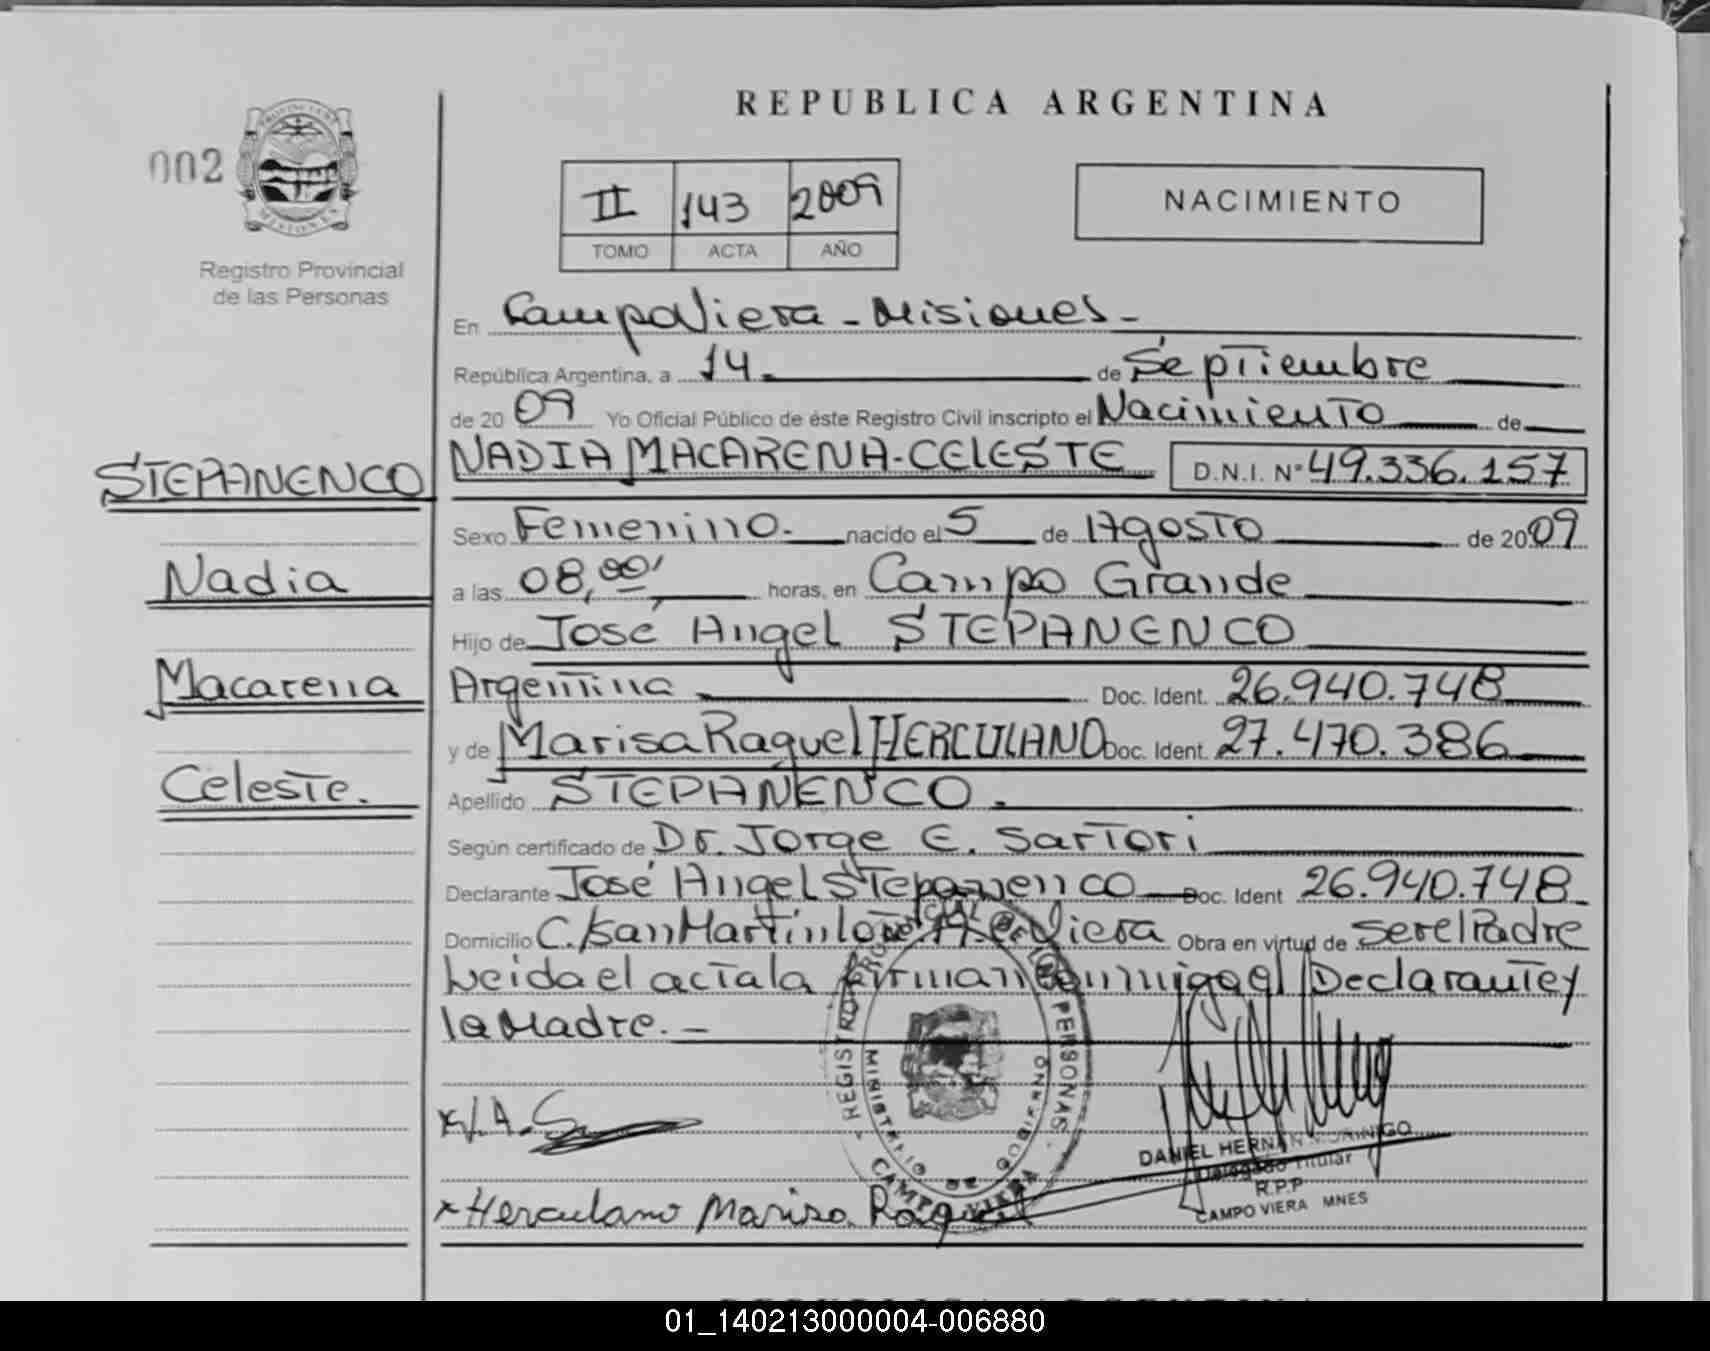 REPUBLICA ARGENTINA
002
PROVINCIA DE
MISIONES
Registro Provincial
de las Personas
II 143 2009
TOMO ACTA AÑO
NACIMIENTO
En Campo Viera - Misiones -
República Argentina, a 14. de Septiembre
de 2009 Yo Oficial Público de éste Registro Civil inscripto el Nacimiento de
STEPANENCO
NADIA MACARENA-CELESTE D.N.I. Nº 49.336.157
Sexo Femenino. nacido el 5 de Agosto de 2009
Nadia
a las 08,00, horas, en Campo Grande
Hijo de José Angel STEPANENCO
Macarena
Argentina Doc. Ident. 26.940.748
y de Marisa Raquel HERCULANO Doc. Ident. 27.470.386
Celeste.
Apellido STEPANENCO.
Según certificado de Dr. Jorge E. Sartori
Declarante José Angel Stepanenco Doc. Ident 26.940.748
Domicilio C./San Martín Viera Obra en virtud de Ser el Padre
Leida el acta la Firman Conmigo el Declarante y
la Madre. -
REGISTRO PROVINCIAL DE LAS PERSONAS
MINISTERIO DE GOBIERNO
CAMPO VIERA
x J.A. S
DANIEL HERNAN MORINIGO
Delegado Titular
R.P.P
CAMPO VIERA MNES
x Herculano Marisa Raquel
01_140213000004-006880